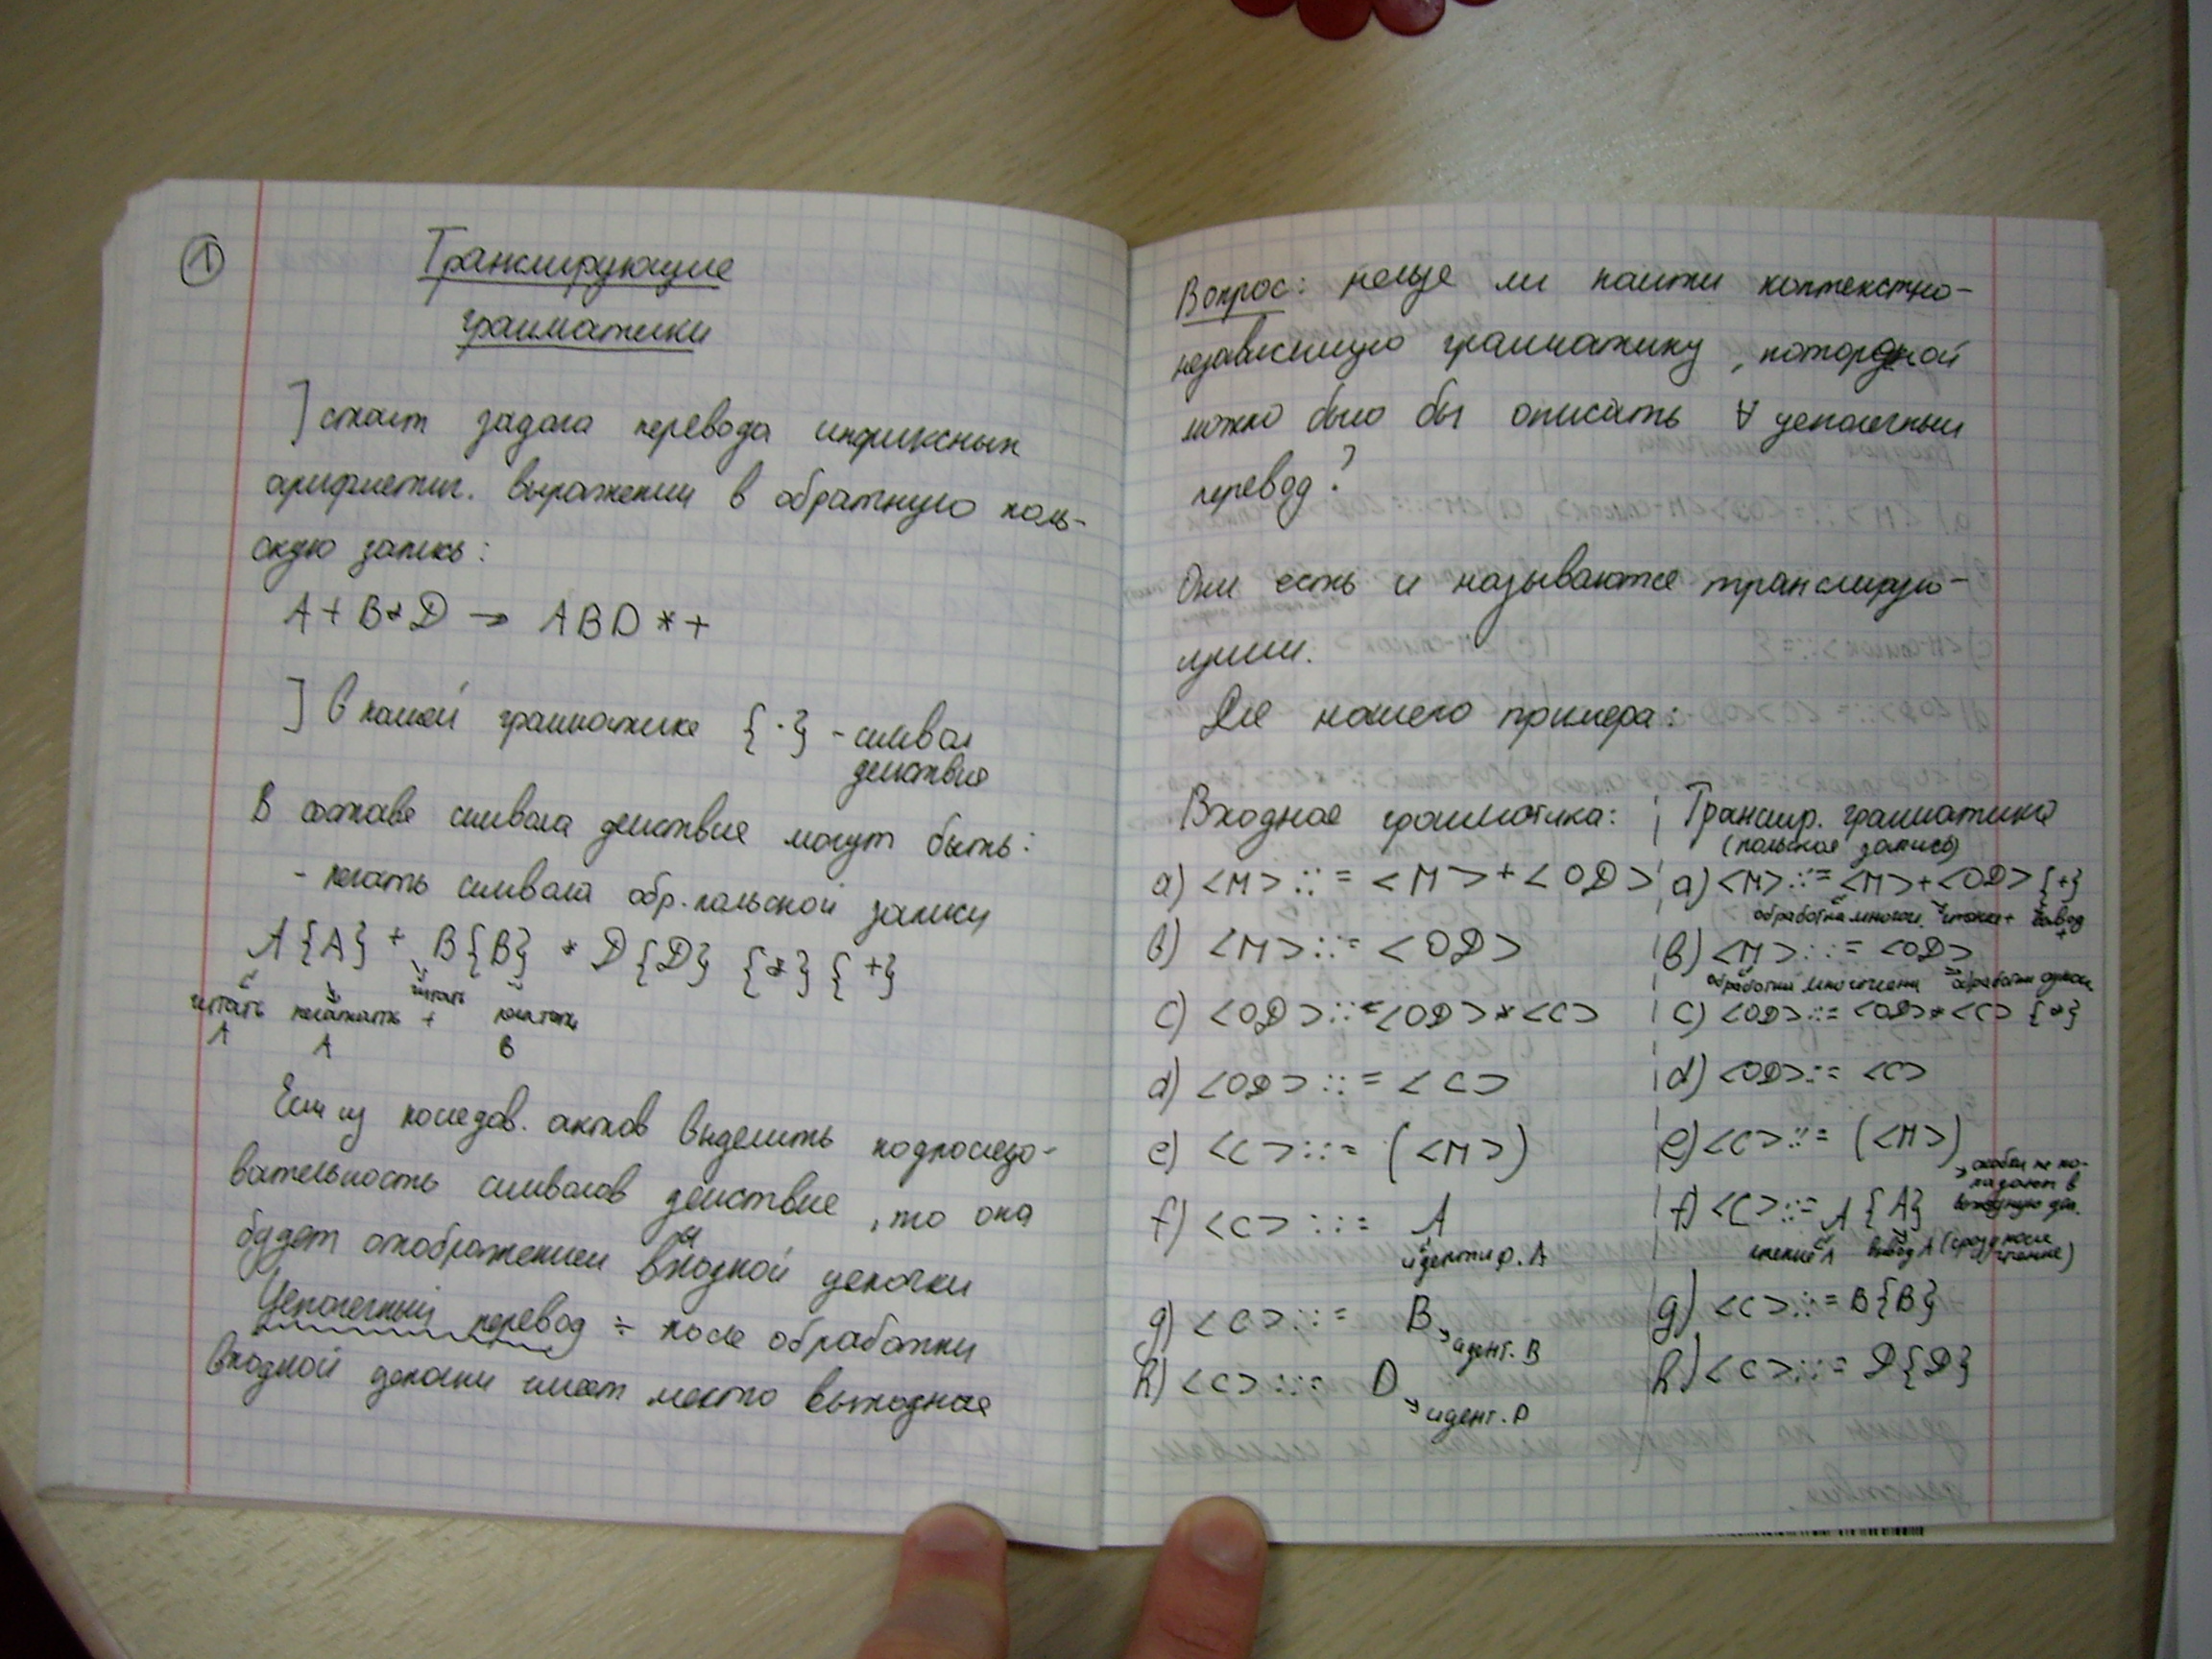 1
Транслирующие
грамматики
] стоит задача перевода инфиксных
арифметич. выражений в обратную поль-
скую запись:
A + B * D → ABD * +
] в нашей грамматике { · } - символ
действия
В составе символа действия могут быть:
- печать символа обр. польской записи
A {A} + B {B} * D {D} {*} {+}
читать печатать читать печатать
A A + B
Если из последов. актов выделить подпоследо-
вательность символов действия, то она
будет отображением входной цепочки
ы
Цепочечный перевод ÷ после обработки
входной цепочки имеет место выходная
Вопрос: нельзя ли найти контекстно-
независимую грамматику, которой
можно было бы описать ∀ цепочечный
перевод?
Они есть и называются транслирую-
щими.
Для нашего примера:
Входная грамматика:
a) <M> ::= <M> + <OD>
b) <M> ::= <OD>
c) <OD> ::= <OD> * <C>
d) <OD> ::= <C>
e) <C> ::= (<M>)
f) <C> ::= A
идентиф. A
g) <C> ::= B
идент. B
h) <C> ::= D
идент. D
Транслир. грамматика
(польская запись)
a) <M> ::= <M> + <OD> {+}
обработка многочл. чтение + вывод +
b) <M> ::= <OD>
обработка многочлена обработка
c) <OD> ::= <OD> * <C> {*}
d) <OD> ::= <C>
e) <C> ::= (<M>)
скобки не по-
падают в
выходную
f) <C> ::= A {A}
чтение A вывод A (сразу после
чтения)
g) <C> ::= B {B}
h) <C> ::= D {D}